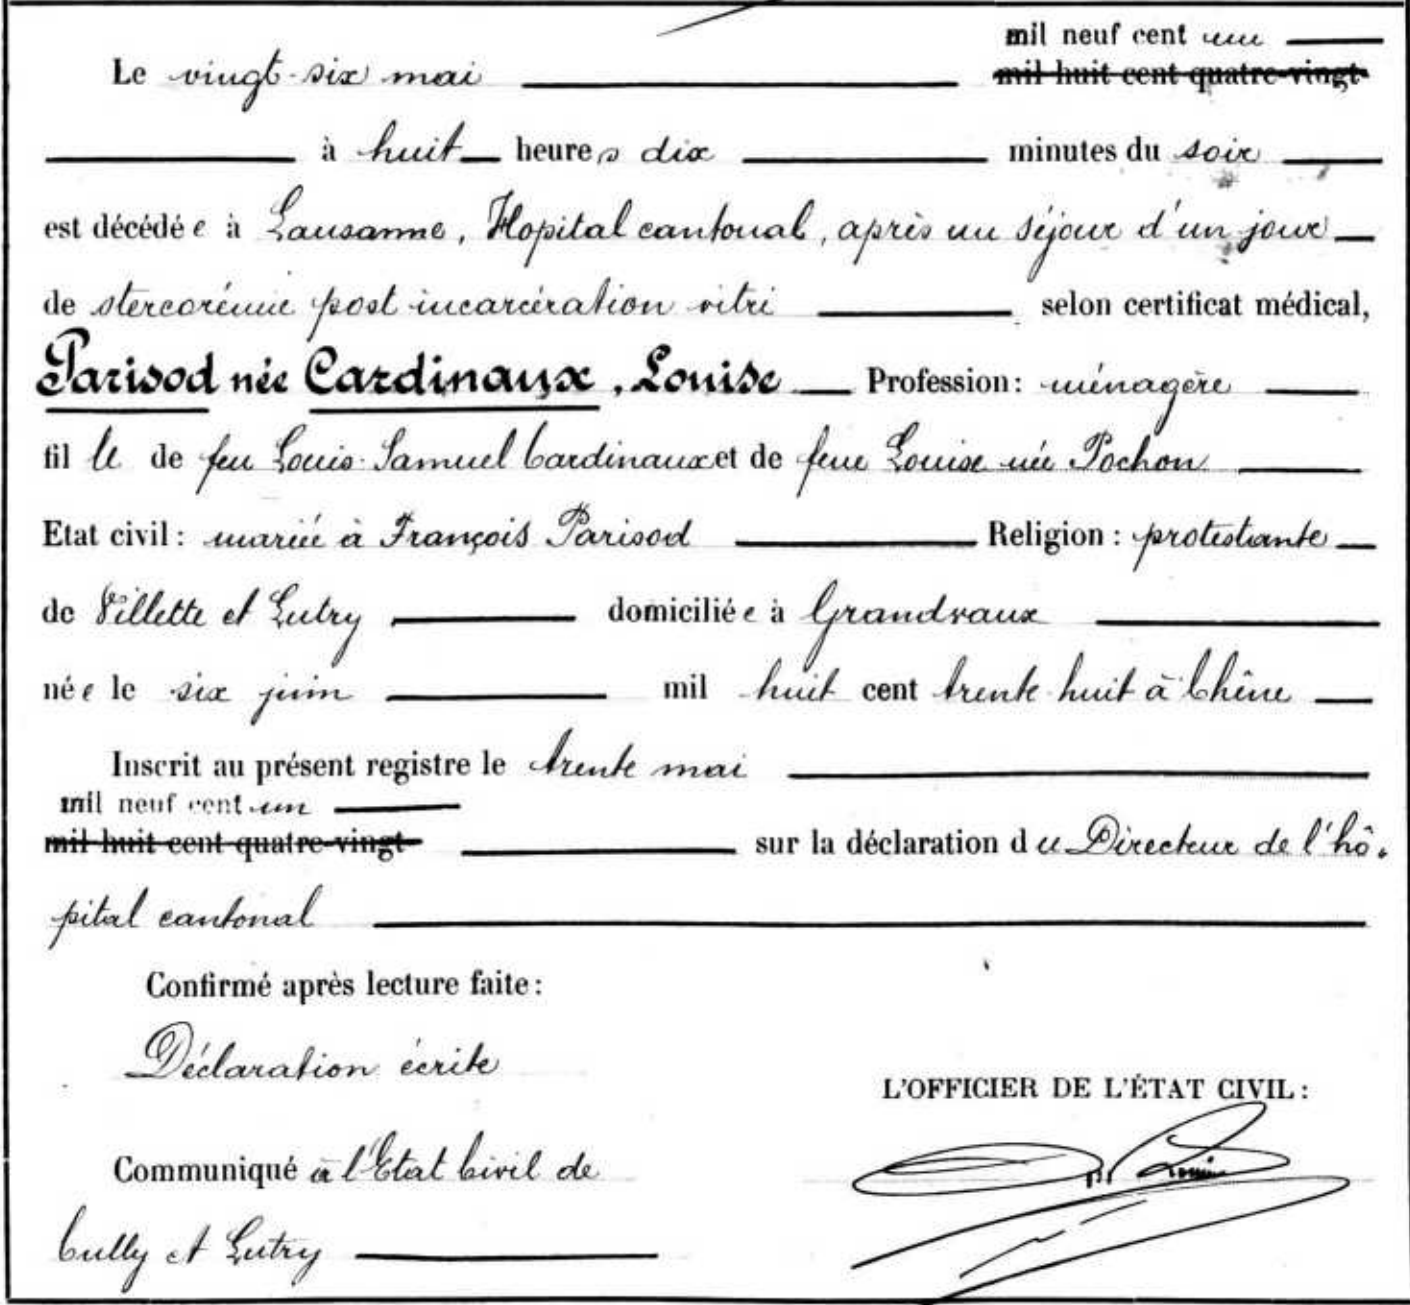 mil neuf cent un
Le vingt-six mai mil huit cent quatre-vingt-
à huit heures dix minutes du soir
est décédée à Lausanne, Hopital cantonal, après un séjour d'un jour
de stercorémie post incarcération vitri selon certificat médical,
Parisod née Cardinaux, Louise Profession: ménagère
fille de feu Louis-Samuel Cardinaux et de feue Louise née Pochon
Etat civil: mariée à François Parisod Religion: protestante
de Villette et Lutry domiciliée à Grandvaux
née le six juin mil huit cent trente huit à Chêne
Inscrit au présent registre le trente mai
mil neuf cent un
mil huit cent quatre-vingt- sur la déclaration du Directeur de l'hô-
pital cantonal
Confirmé après lecture faite:
Déclaration écrite
L'OFFICIER DE L'ÉTAT CIVIL:
Communiqué à l'Etat Civil de
Cully et Lutry